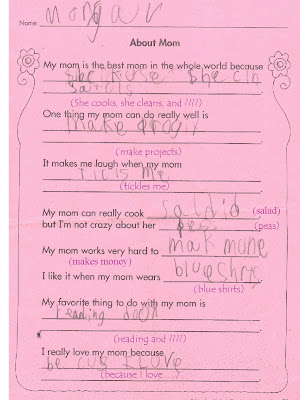 Name:
About Mom
My mom is the best mom in the whole world because
she
(She cooks, she cleans, and ????)
One thing my mom can do really well is
make
(make projects)
It makes me laugh when my mom
ticls me
(tickles me)
My mom can really cook salad (salad)
but I'm not crazy about her pes (peas)
My mom works very hard to mak mone
(makes money)
I like it when my mom wears blue shrts
(blue shirts)
My favorite thing to do with my mom is
reading
(reading and ????)
I really love my mom because
be cus I love
(because I love.....)